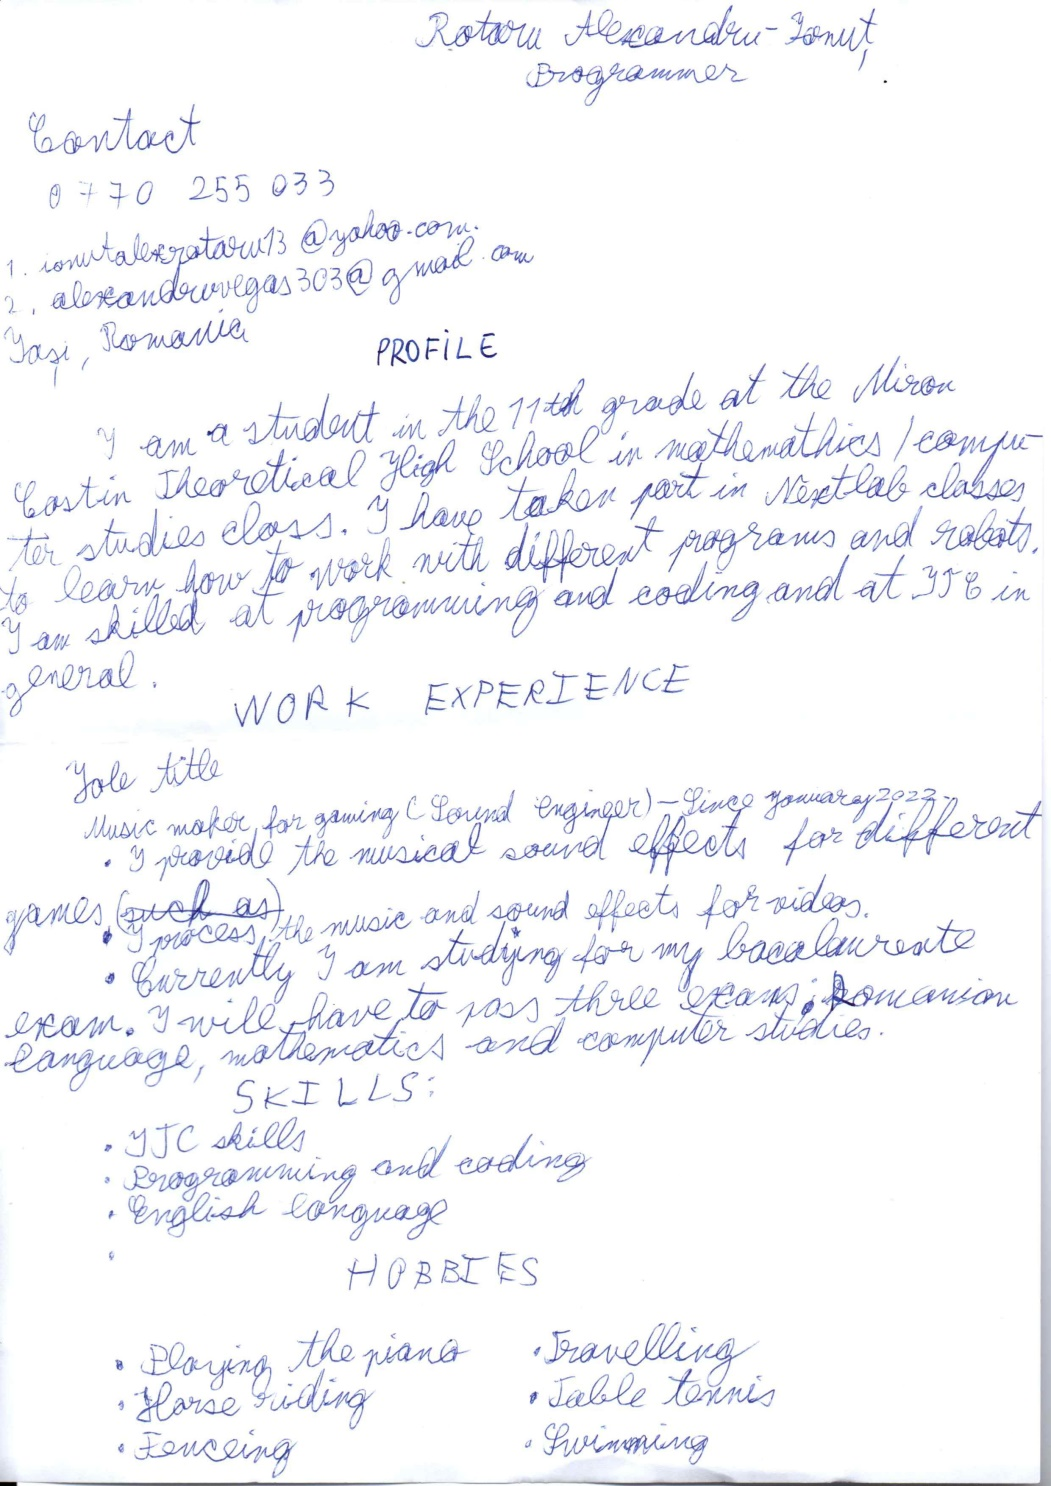 Rotaru Alexandru-Ionuț
Programmer
Contact
0770 255 033
1. ionutalexrotaru13@yahoo.com.
2. alexandruvegas303@gmail.com
Iași, Romania
PROFILE
I am a student in the 11th grade at the Miron
Costin Theoretical High School in mathemathics/compu-
ter studies class. I have taken part in Nextlab classes
to learn how to work with different programs and robots.
I am skilled at programming and coding and at ITC in
general.
WORK EXPERIENCE
Jole title
Music maker for gaming (Sound engineer) - Since January 2022.
• I provide the musical sound effects for different
games (such as)
• I process the music and sound effects for videos.
• Currently I am studying for my bacalaureate
exam. I will have to pass three exams: Romanian
language, mathematics and computer studies.
SKILLS:
• ITC skills
• Programming and coding
• English language
•
HOBBIES
• Playing the piano • Travelling
• Horse riding • Table tennis
• Fenceing • Swimming